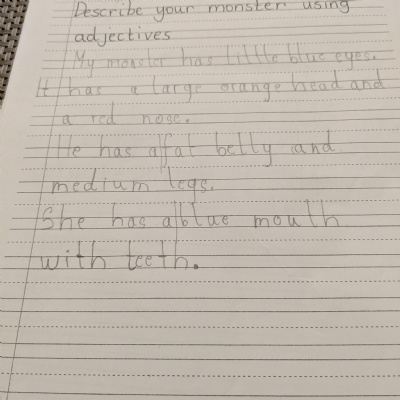 Describe your monster using
adjectives
My monster has little blue eyes.
It has a large orange head and
a red nose.
He has a fat belly and
medium legs.
She has a blue mouth
with teeth.